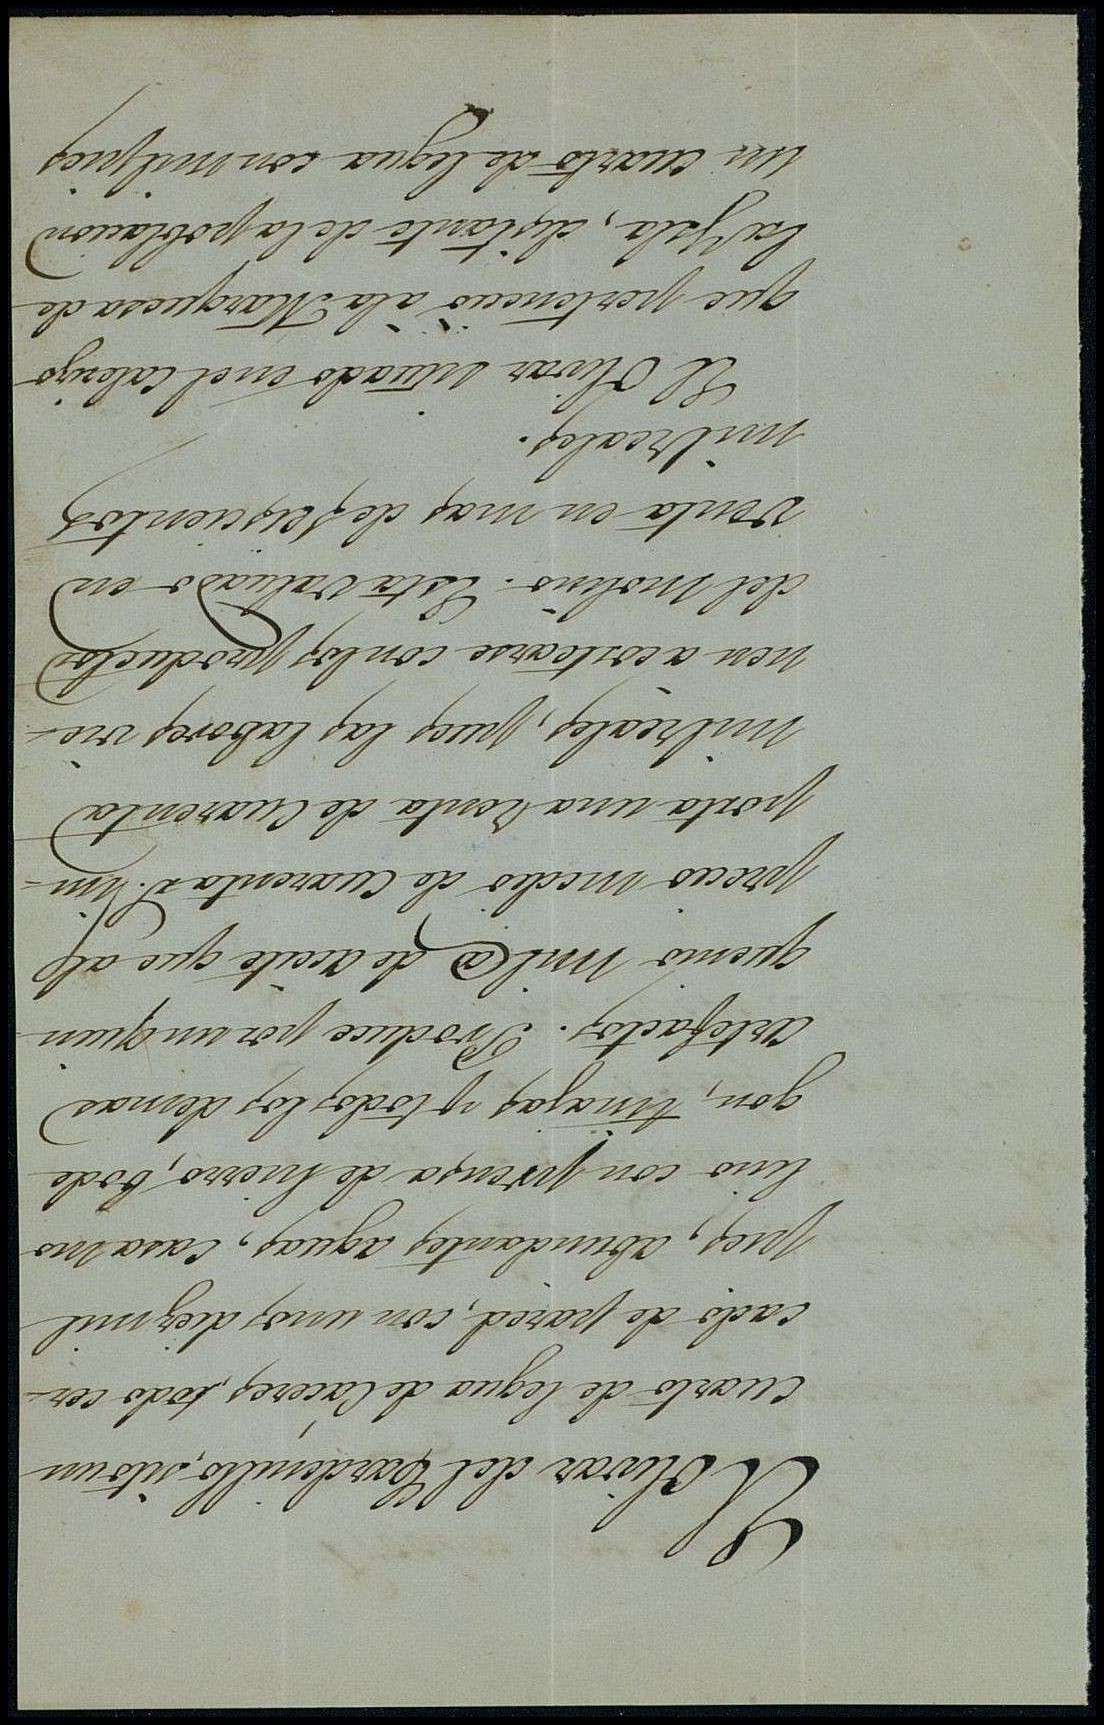 El Olivar del Cardenillo, sito un
cuarto de legua de Caceres, todo cer-
cado de pared, con unos diez mil
pies, abundantes aguas, Casa mo
lino con prensa de hierro, bode
gon, tinajas y todos los demas
artefactos. Produce por un quin
quenio mil @ de aceite que al
precio medio de Cuarenta r.^s im-
porta una renta de Cuarenta
mil reales, pues las labores vie-
nen a costearse con los productos
del Molino. Esta valuado en
venta en mas de seiscientos
mil reales.
El Olivar situado en el Calerizo
que perteneció a la Marquesa de
la Ysla, distante de la poblacion
un cuarto de legua con mil pies